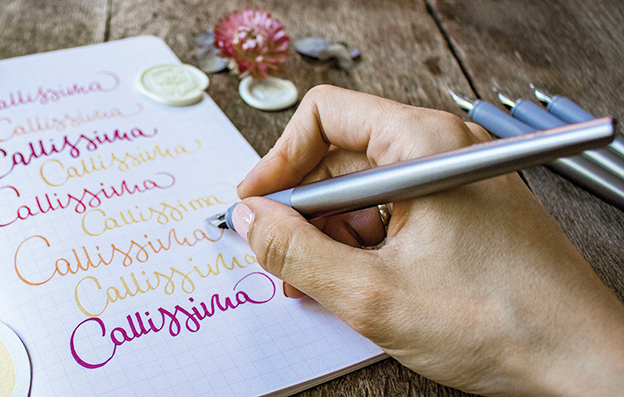 Callissima
Callissima
Callissima
Callissima
Callissima
Callissima
Callissima
Callissima
Callissima